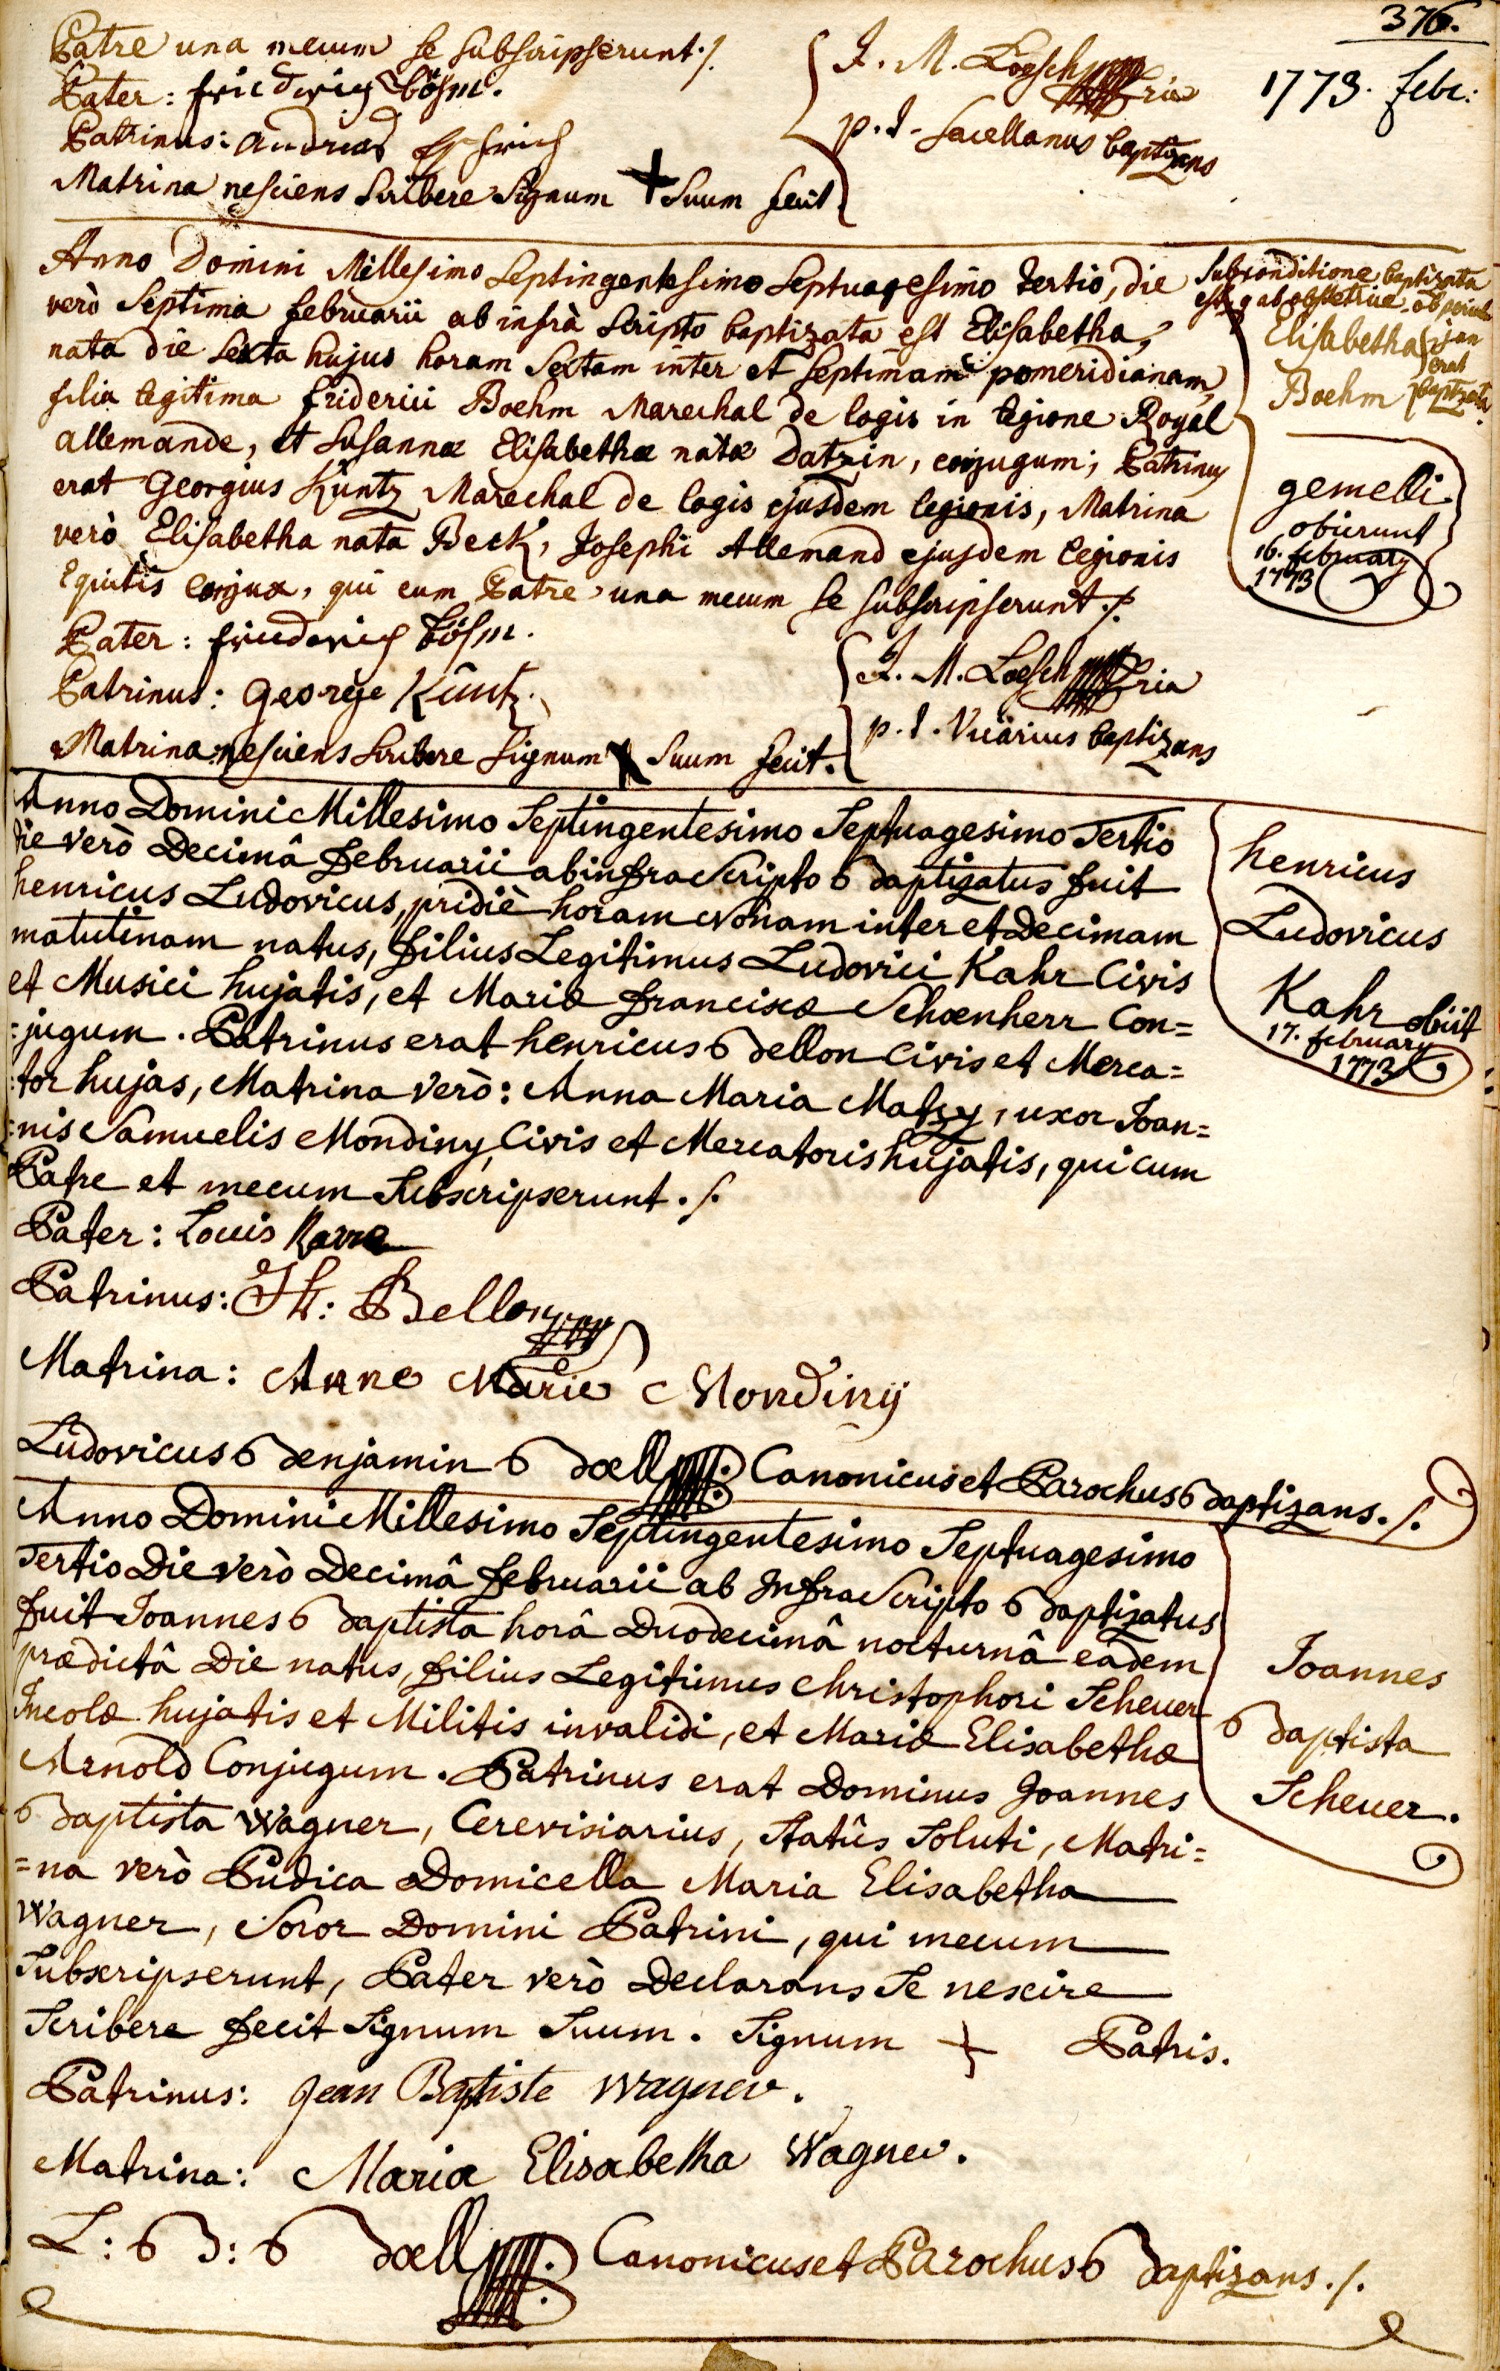 376.
1773. febr:
Patre una mecum se subscripserunt ./.
Pater: friedrich böhm.
Patrinus: andreas
Matrina nesciens scribere signum + suum fecit
J. M. Loesch
p. t. sacellanus baptizans
Anno Domini Millesimo septingentesimo septuagesimo tertio, die
verò septima februarii ab infrà scripto baptizata est Elisabetha,
nata die sexta hujus horam sextam inter et septimam pomeridianam,
filia legitima friderici Boehm Marechal de logis in legione Royal
allemande, et Susannæ Elisabethæ natæ Datzin, conjugum; Patrinus
erat Georgius Küntz Marechal de logis ejusdem legionis, Matrina
verò Elisabetha nata Beck, Josephi Allemand ejusdem legionis
Equitis conjux, qui cum Patre una mecum se subscripserunt ./.
Sub conditione baptizata
est ab obstetrice ob pericul
Elisabetha jam
erat
Boehm baptizata
gemelli
obierunt
16. february
1773
Pater: friederich böhm.
Patrinus: George Küntz.
Matrina nesciens scribere signum + suum fecit.
J. M. Loesch
p. t. Vicarius baptizans
Anno Domini Millesimo Septingentesimo Septuagesimo Tertio
die verò Decimâ februarii ab infra Scripto Baptizatus fuit
henricus Ludovicus, pridiè horam nonam inter et Decimam
matutinam natus, filius Legitimus Ludovici Kahr Civis
et Musici hujatis, et Mariæ franciscæ Schoenherr Con=
=jugum. Patrinus erat henricus Bellon Civis et Merca=
=tor hujas, Matrina verò: Anna Maria Matzy, uxor Joan=
=nis Samuelis Mondiny, Civis et Mercatoris hujatis, qui cum
Patre et mecum Subscripserunt ./.
henricus
Ludovicus
Kahr obiit
17. february
1773
Pater: Louis Karre
Patrinus: H: Bellon
Matrina: Anne Marie Mondinÿ
Ludovicus Benjamin Boell Canonicus et Parochus Baptizans ./.
Anno Domini Millesimo Septingentesimo Septuagesimo
Tertio Die verò Decimâ februarii ab Infra Scripto Baptizatus
fuit Joannes Baptista horâ Duodecimâ nocturnâ eâdem
prædictâ Die natus, filius Legitimus Christophori Scheuer
Incolæ hujatis et Militis invalidi, et Mariæ Elisabethæ
Arnold Conjugum. Patrinus erat Dominus Joannes
Baptista Wagner, Cerevisiarius, Statûs Soluti, Matri=
=na verò Pudica Domicella Maria Elisabetha
Wagner, Soror Domini Patrini, qui mecum
Subscripserunt, Pater verò Declarans Se nescire
Scribere fecit Signum Suum. Signum + Patris.
Joannes
Baptista
Scheuer.
Patrinus: Jean Baptiste Wagner.
Matrina: Maria Elisabetha Wagner.
L: B: Boell Canonicus et Parochus Baptizans ./.